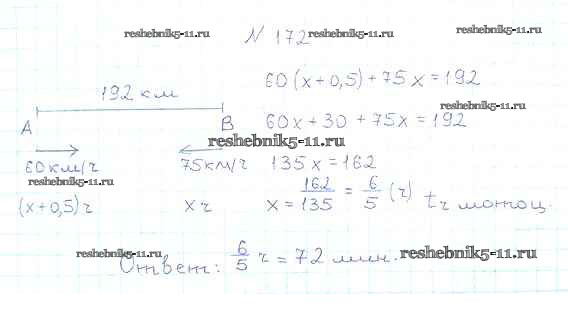 reshebnik5-11.ru
N 172
reshebnik5-11.ru
reshebnik5-11.ru
60(x+0,5)+75x=192
192 км
reshebnik5-11.ru
A
B
60x+30+75x=192
reshebnik5-11.ru
60км/ч
75км/ч
135x=162
reshebnik5-11.ru
(x+0,5)ч
xч
x=162/135=6/5(ч) tч мотоц.
reshebnik5-11.ru
Ответ: 6/5 ч = 72 мин.
reshebnik5-11.ru
reshebnik5-11.ru